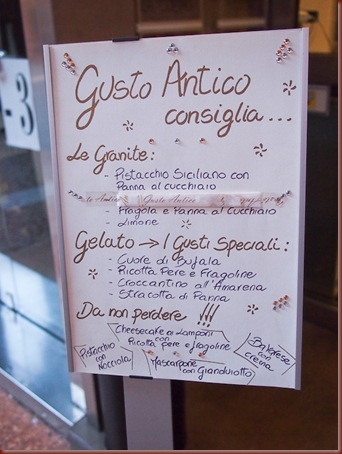 -3
Gusto Antico
consiglia...
Le Granite:
- Pistacchio Siciliano con
Panna al cucchiaio
Gusto Antico
- Fragola e Panna al Cucchiaio
- Limone
Gelato → I Gusti Speciali:
- Cuore di Bufala
- Ricotta Pere e Fragoline
- Croccantino all'Amarena
- Stracotta di Panna
Da non perdere !!!
Cheesecake ai Lamponi
con
Ricotta Pere e fragoline
Pistacchio
con
Nocciola
Mascarpone
con Gianduiotto
Bavarese
con
crema